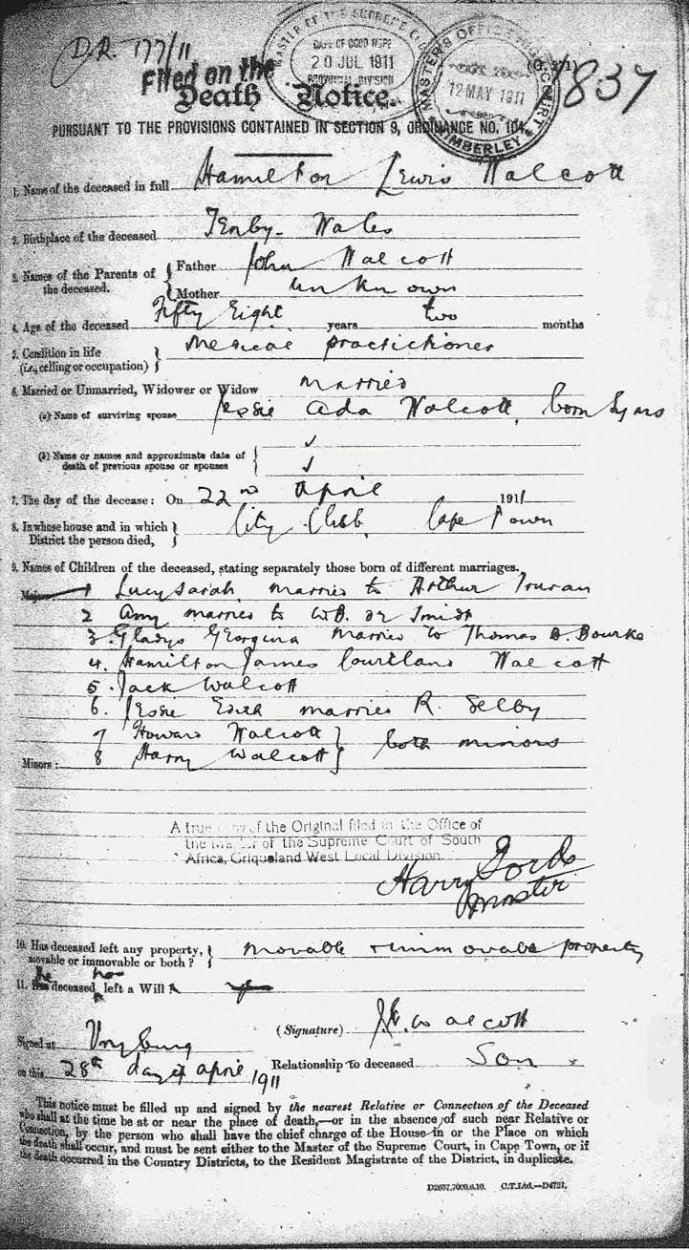 D.R. 177/11
Filed on the
MASTER OF THE SUPREME
CAPE OF GOOD HOPE
20 JUL 1911
PROVINCIAL DIVISION
MASTER'S OFFICE HIGH COURT
12 MAY 1911
KIMBERLEY
1837
Death Notice.
PURSUANT TO THE PROVISIONS CONTAINED IN SECTION 9, ORDINANCE NO. 104.
1. Name of the deceased in full Hamilton Lewis Walcott
2. Birthplace of the deceased Tenby - Wales
3. Names of the Parents of the deceased. Father John Walcott
Mother unknown
4. Age of the deceased Fifty Eight years two months
5. Condition in life (i.e., calling or occupation) Medical practitioner
6. Married or Unmarried, Widower or Widow Married
(a) Name of surviving spouse Jessie Ada Walcott, born
(b) Name or names and approximate date of death of previous spouse or spouses
7. The day of the decease: On 22nd April 1911
8. In whose house and in which District the person died, City Club, Cape Town
9. Names of Children of the deceased, stating separately those born of different marriages.
1 Lucy Sarah, married to Arthur
2 Amy married to W.B. de Smidt
3. Gladys Georgina married to Thomas B. Bourke
4. Hamilton James Courtland Walcott
5. Jack Walcott
6. Jessie Edith married R. Selby
7 Howard Walcott } both minors
Minors: 8 Harry Walcott }
A true copy of the Original filed in the Office of
the Master of the Supreme Court of South
Africa, Griqualand West Local Division.
Harry
Master
10. Has deceased left any property, movable or immovable or both? movable + immovable property
11. The deceased has left a Will
(Signature) Walcott
Signed at Vryburg
Relationship to deceased Son
on this 28th day of April 1911
This notice must be filled up and signed by the nearest Relative or Connection of the Deceased
who shall at the time be at or near the place of death,—or in the absence of such near Relative or
Connection, by the person who shall have the chief charge of the House in or the Place on which
the death shall occur, and must be sent either to the Master of the Supreme Court, in Cape Town, or if
the death occurred in the Country Districts, to the Resident Magistrate of the District, in duplicate.
C.T.Ltd.—D4721.